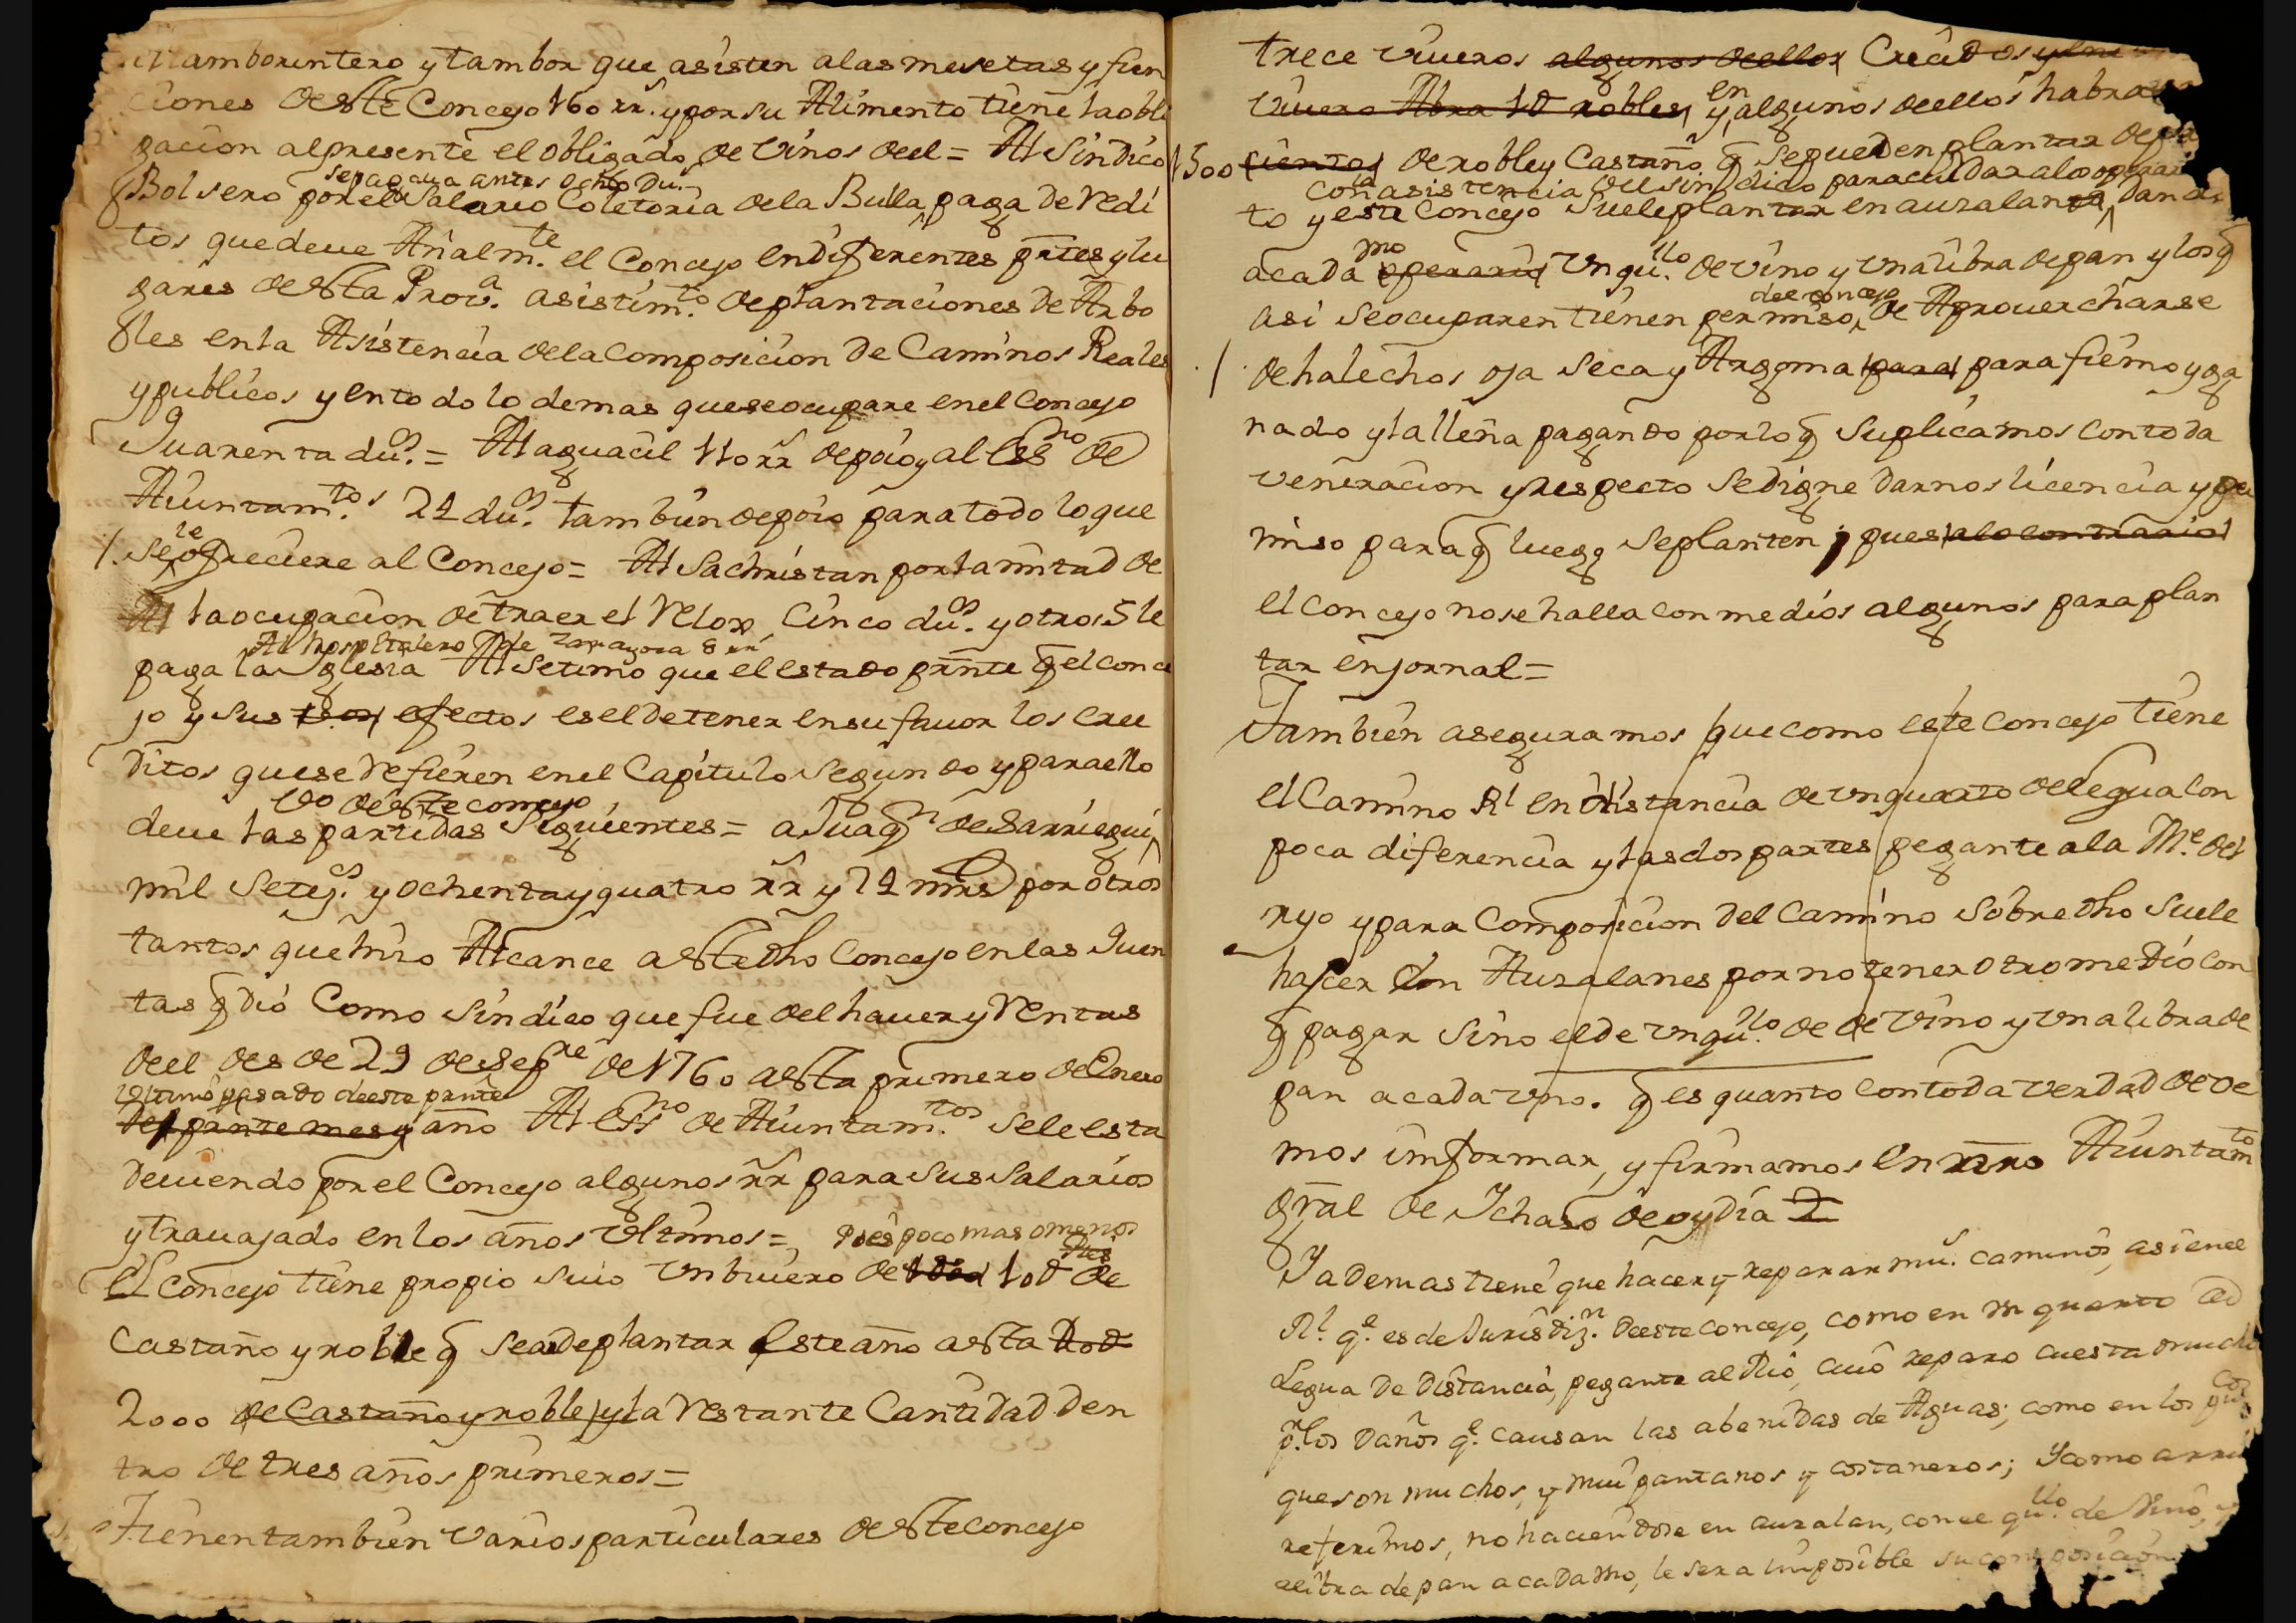 tamborintero y tambor que asisten alas mesetas y fun
ciones de este Concejo 160 rr.s y por su Alimento tiene la obli
gacion al presente el obligado de vinos de el = Al Sindico
se pagava antes ocho du.s
Bolsero por el Salario Coletoria de la Bulla, paga de redi
tos que deve Añalm.te el Concejo en diferentes prtes y lu
gares de esta Prov.a asistim.to de plantaciones de Arbo
les en la Asistencia de la composicion de Caminos Reales
y publicos y en todo lo demas que se ocupare en el Concejo
Quarenta du.s = Al aguacil 110 rr de poio y al Ess.no de
Aiuntam.tos 24 du.s tambien de poio para todo lo que
le
se ofreciere al Concejo = Al Sachristan por la mitad de
la ocupacion de traer el Relox cinco du.s y otros 5 le
Al hospitalero de Zarragoza 8 rr
paga la Iglesia Al Setimo que el estado prnte q el conce
jo y sus efectos es el de tener en su favor los cree
ditos que se refieren en el Capitulo Segundo y para ello
do de este concejo
deve las partidas siguientes = a Juaq.n de Sarriegui,
mil seteg.s y ochenta y quatro rr y 24 mrs por otros
tantos que hizo Alcance a este dho Concejo en las Quen
tas q dió Como Sindico que fue del haver y Rentas
de el des de 29 de Sep.re de 1760 asta primero de Enero
ultimo pasado de este prnte
del pnte mes y año Al Ess.no de Aiuntam.tos se le esta
deviendo por el Concejo algunos rr para sus salarios
y travajado en los años ultimos =
Dies poco mas o menos
El Concejo tiene propio suio un bivero de 10 D de
Castaño y roble q se a de plantar este año asta
2000 de Castaño y roble y la restante Cantidad den
tro de tres años primeros =
Tienen tambien varios particulares de este concejo
trece viveros algunos de ellos Creidos
vivero Abra 10 robles y en algunos de ellos habra
1500 cientos de roble y Castaño q se pueden plantar
con la asistencia del sindico para cuidar a los
to y este Concejo suele plantar en auzalan, dando
a cada uno operario un qu.llo de vino y una libra de pan y los q
del concejo
asi se ocuparen tienen permiso, de Aprovercharse
de halechos oja seca y Argoma para para fiemo y ga
nado y la lleña pagando por lo q suplicamos con toda
veneracion y respecto se digne darnos licencia y per
miso para q luego se planten, pues alo contrario
el concejo no se halla con medios algunos para plan
tar en jornal =
Tambien aseguramos que como este concejo tiene
el Camino Rl en distancia de un quarto de legua con
poca diferencia y las dos partes pegante a la M.e del
ryo y para Composicion del Camino Sobre dho suele
hascer con Auzalanes por no tener otro medio con
q pagar sino el de un qu.llo de de vino y una libra de
pan a cada uno. q es quanto con toda verdad deve
mos imformar, y firmamos en nro Aiuntam.to
gral de Ichaso de oy dia 2
Y ademas tiene que hacer y reparar mu.s caminos, asi en el
Rl. q.e es de Jurisdiz.n de este concejo, como en un quarto de
Legua de Distancia, pegante al Rio, cuio reparo cuesta mucho
p.r los Daños q.e causan las abenidas de Aguas; como en los
que son muchos, y mui pantanos y costaneros; y como arri
referimos, no haciendose en auzalan, con el qu.llo de Vino,
a libra de pan a cada uno, le sera imposible su composicion